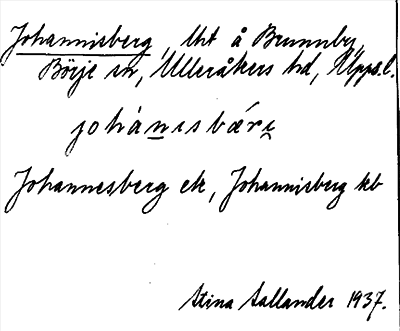 Johannisberg, lht å Brunnby,
Börje sn, Ulleråkers hd, Upps.l.
johànisbæri
Johannesberg ek, Johannisberg kb
Stina Sallander 1937.